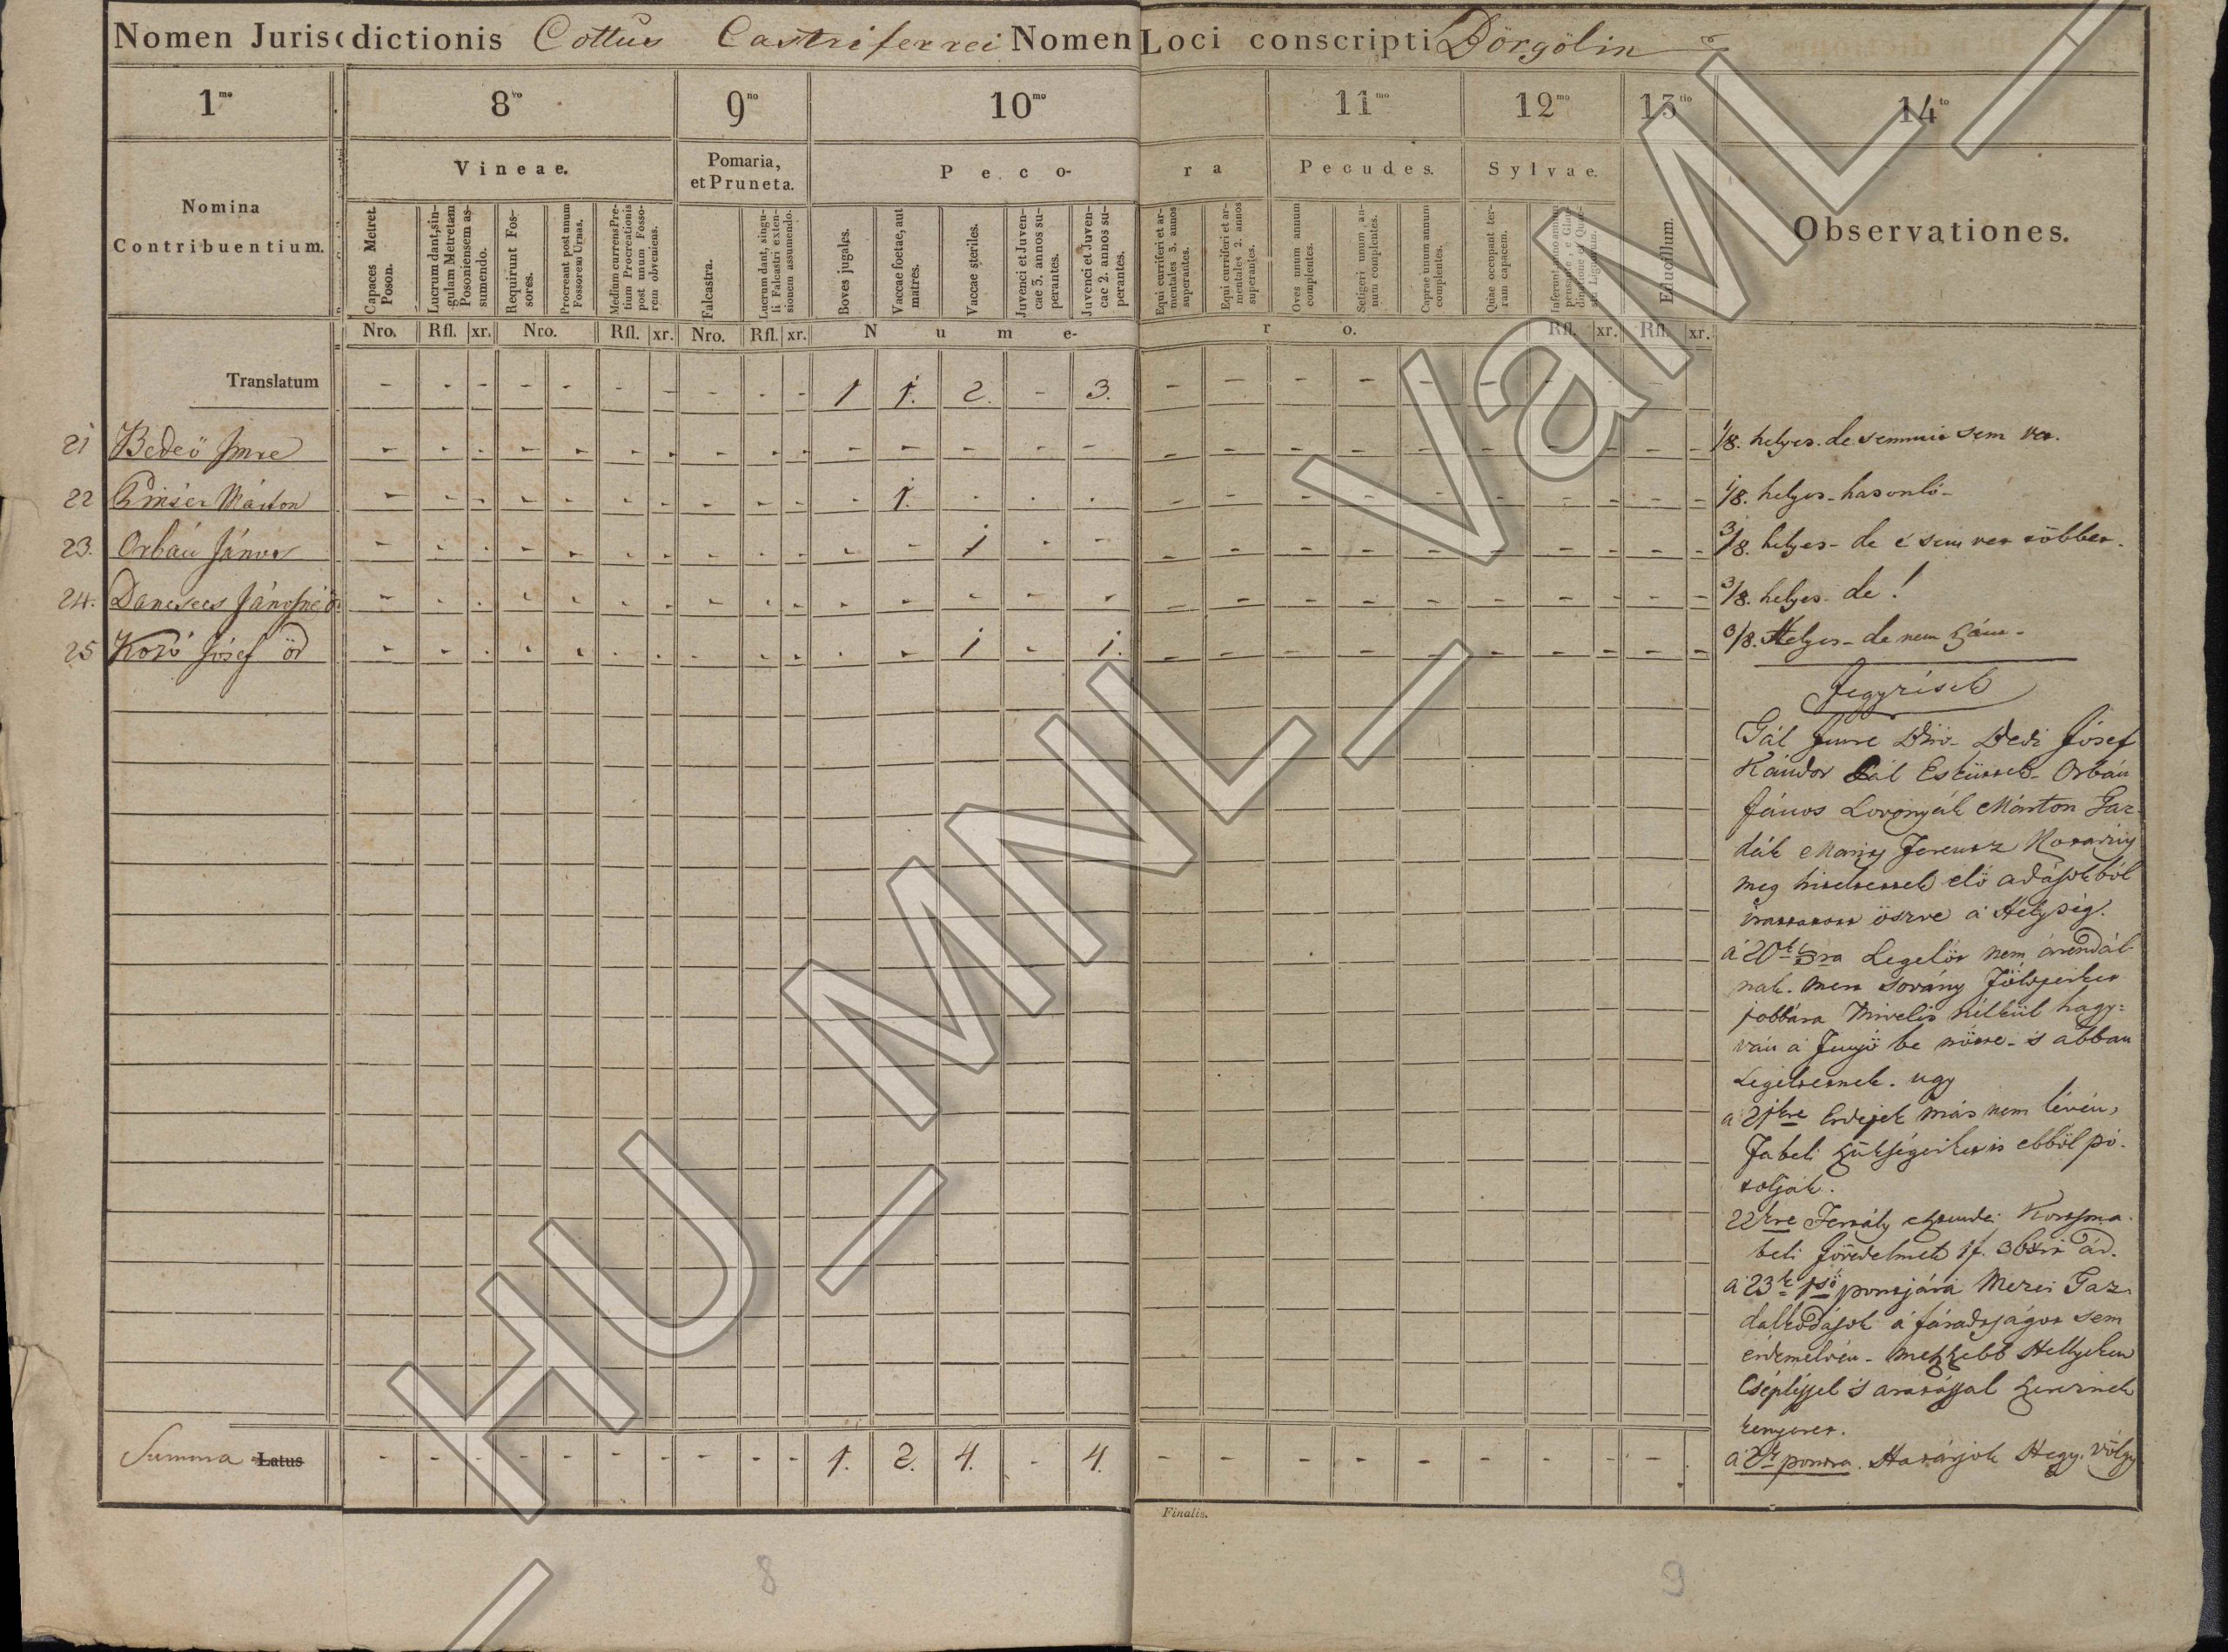 Nomen Jurisdictionis Cottus Castriferrei Nomen Loci conscripti Dörgölin
1mo 8vo 9no 10mo 11mo 12mo 13tio 14to
Nomina Contribuentium.
Vineae.
Pomaria, et Pruneta.
Peco-
ra
Pecudes.
Sylvae.
Educillum.
Observationes.
Capaces Metret. Poson.
Lucrum dant, singulam Metretam Posoniensem assumendo.
Requirunt Fossores.
Procreant post unum Fossorem Urnas.
Medium currens Pretium Procreationis post unum Fossorem obveniens.
Falcastra.
Lucrum dant, singuli Falcastri extensionem assumendo.
Boves jugales.
Vaccae foetae, aut matres.
Vaccae steriles.
Juvenci et Juvencae 3. annos superantes.
Juvenci et Juvencae 2. annos superantes.
Equi curriferi et armentales 3. annos superantes.
Equi curriferi et armentales 2. annos superantes.
Oves unum annum complentes.
Setigeri unum annum complentes.
Caprae unum annum complentes.
Quae occupant terram capacem.
Nro. Rfl. xr. Nro. Rfl. xr. Nro. Rfl. xr. N u m e-
r o. Rfl. xr. Rfl. xr.
Translatum - - - - - - - - - - 1 1. 2. - 3. - - - - - - - - - -
21 Bedeö Imre - - - - - - - - - - - - - - - - - - - - - - - - - 1/8. helyes. de semmie sem
22 Márton - - - - - - - - - - - 1. - - - - - - - - - - - - - 1/8. helyes - hasonló -
23. Orbán János - - - - - - - - - - - - 1 - - - - - - - - - - - - 3/8. helyes - de
24. - - - - - - - - - - - - - - - - - - - - - - - - - 3/8. helyes - de!
25 Kozó Jósef öd - - - - - - - - - - - - 1 - 1. - - - - - - - - - - 3/8. Helyes - de nem
Jegyzések
Gál Imre Biró - Dedi Jósef
Kándor Pál Esküttek - Orbán
János Lovenyák Márton Gaz-
dák Ferentz
meg hiteltettek elö adásokból
öszve a Helység.
a 20k 3ra Legelöt nem árendál-
nak. mert sovány Földjeiket
jobbára Mivelés nélkül hagy=
ván a Fenyö be nötte - s abban
Legeltetnek. ugy
a 21kre Erdejek más nem lévén,
Fabeli Szükségeiket is ebböl pó-
tolják.
22kre Korcsma-
beli Jövedelmek 1f. 36xrt ád.
a 23k 1sö pontjára Mezei Gaz-
dálkodások a fáradságot sem
érdemelvén - meszszebb Hellyeken
Csépléssel s aratással szereznek
kenyeret.
a 2k pontra. Határjok Hegy. völgy
Summa Latus - - - - - - - - - - 1. 2. 4. - 4. - - - - - - - - - -
Finalis.
8 9
HU_MNL_VaML_